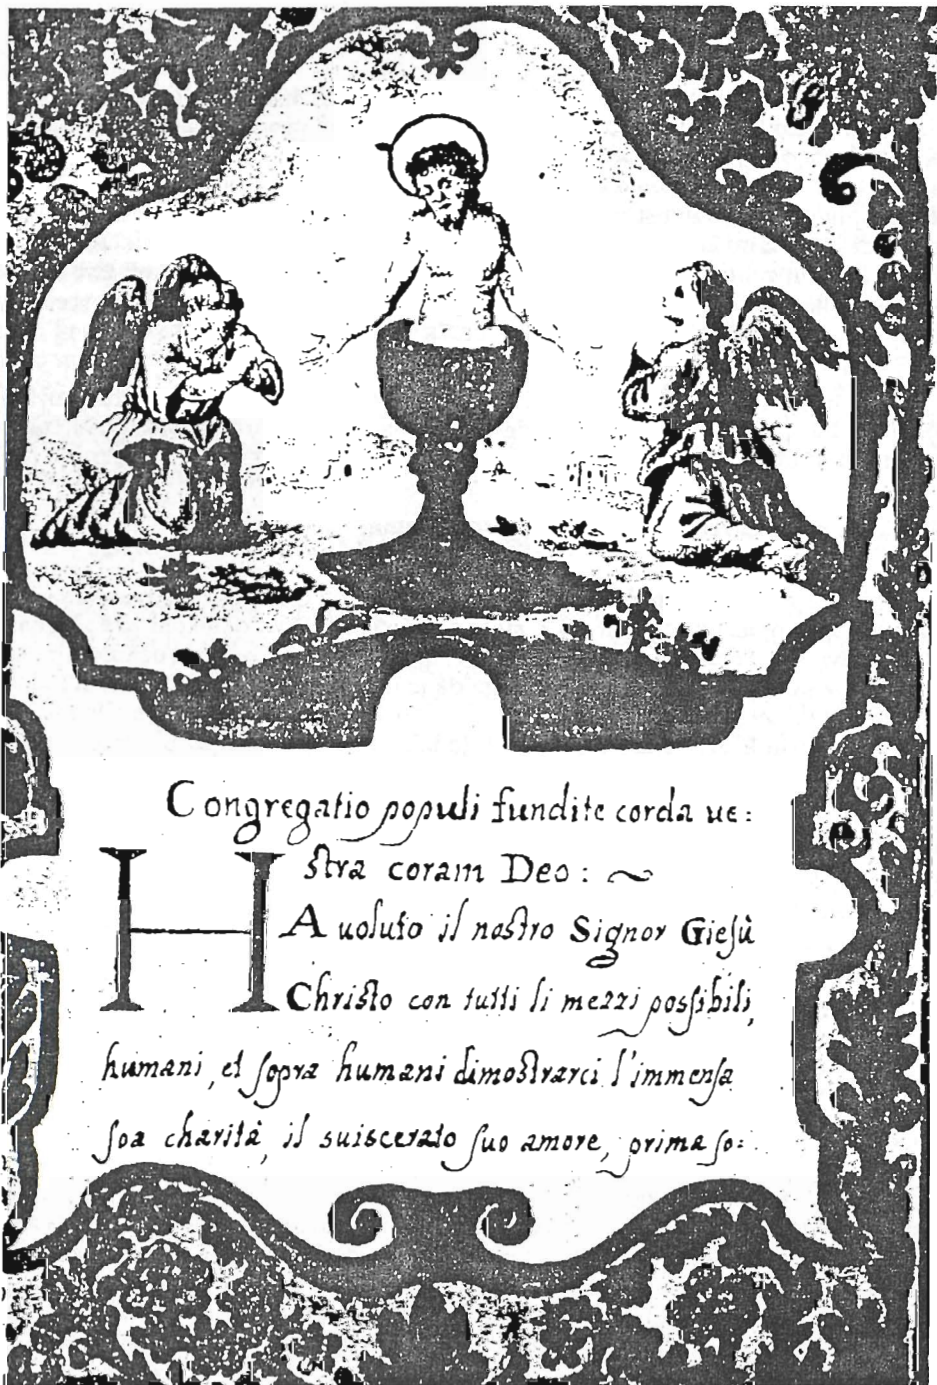 Congregatio populi fundite corda ue:
stra coram Deo: ~
HA uoluto il nostro Signor Giesù
Christo con tutti li mezzi possibili,
humani, et sopra humani dimostrarci l'immensa
soa charità, il suiscerato suo amore, prima so: